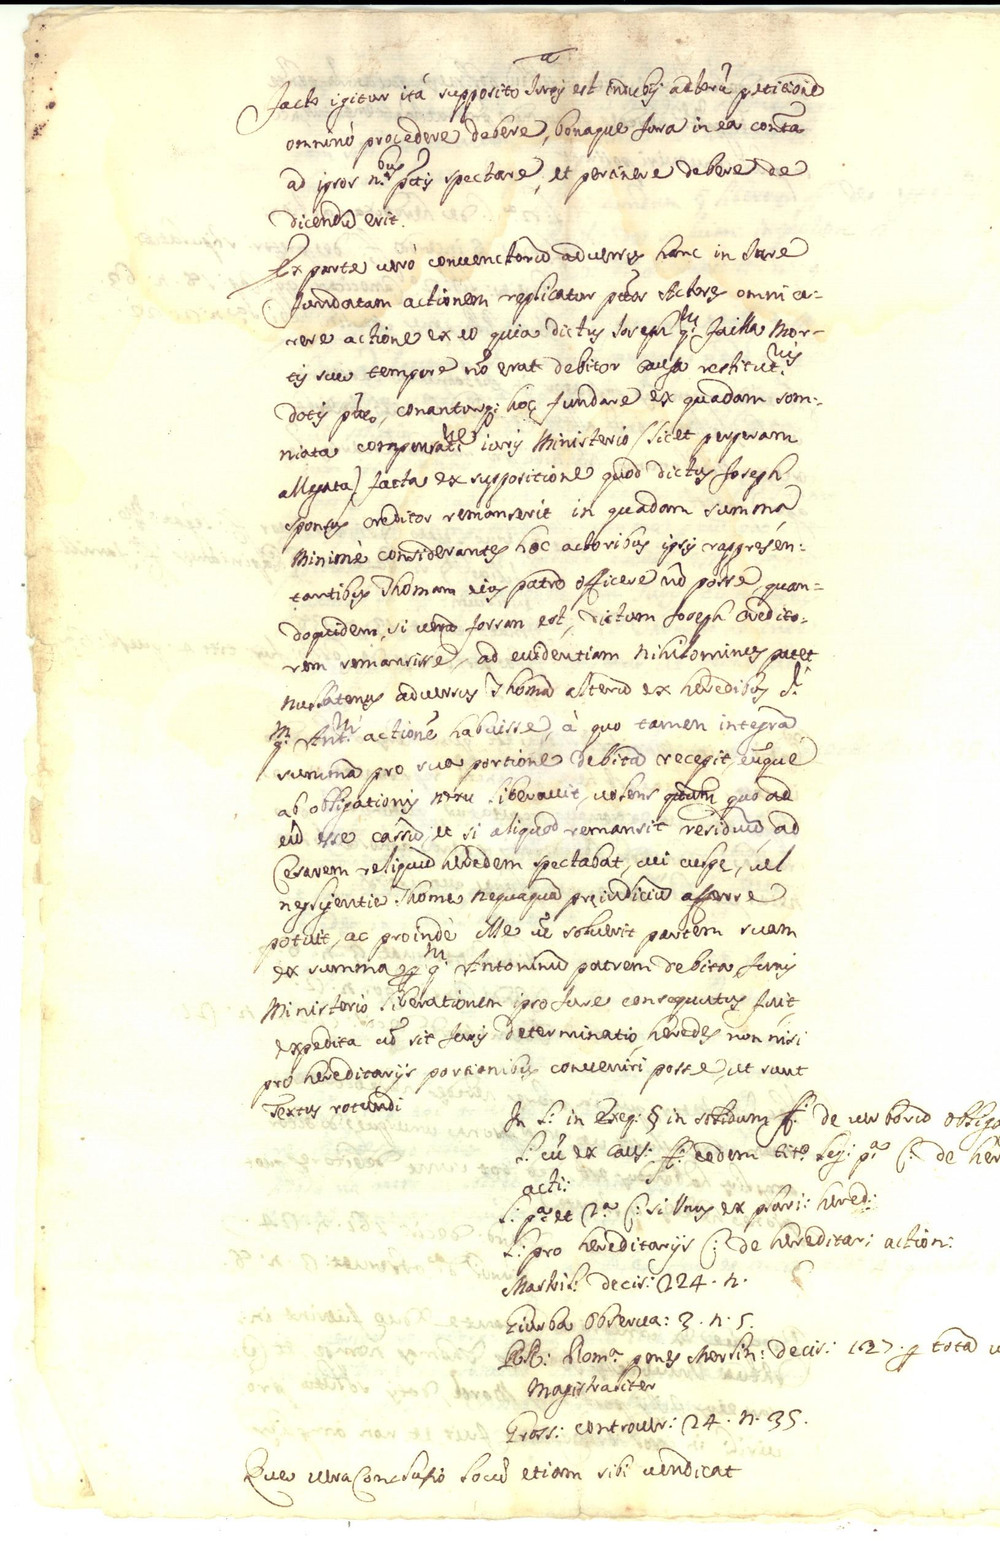 facto igitur ità supposito Iuris est indubij actorū petitionē
omninò procedere debere, bonaque Iura in ea contᵃ
ad ipsos pctīs spectare, et pertinere debere de
dicendū erit.
Ex parte uerò conuenctorū aduersus hanc in Iure
fundatam actionem replicatur pctōs Actores omni ca-
rere actione ex eo quia dictus Joseph Mor-
tis suæ tempore nō erat debitor causa restitut.ⁿⁱˢ
dotis pctæ, conanturq; hoc fundare ex quadam som-
niata compensatⁿᵉ iuris Ministerio (licet perperam
allegata) facta ex suppositione quod dictus Joseph
sponsus creditor remanserit in quadam summa
Minimè considerantes hoc actoribus ipsis rappresen-
tantibus Thomam eius patrē officere nō posse, quan-
doquidem, si uerū forsan est, dictum Joseph credito-
rem remansisse, ad euidentiam nihilominus patet
nullatenus aduersus Thomā alterū ex heredibus
q.ᵐ Ant.ⁿⁱ actionē habuisse, à quo tamen integrā
summā pro sua portione debitā recepit, eūque
ab obligationis liberauit, uolens quo ad
eū esse cassū, et si aliquod remansit residuū, ad
Cesarem reliquū heredem spectabat, cui culpæ, uel
negligentiæ Thomæ nequaquā preiudiciū afferre
potuit, ac proindè ille ut soluerit partem suam
ex summa q.ᵐ Antoninū patrem debita Iuris
Ministerio liberationem ipso Iure consequutus fuit
expedita cū sit Iuris determinatio, heredes non nisi
pro hereditarijs portionibus conueniri posse, ut sunt
Textus rotundi
In l: in exeq: § in solidum ff: de uerborū obliga
l: cū ex caus: ff: eodem titᵒ leg: pᵃ C: de her
acti:
l: pᵃ et 2ᵃ C: si unus ex plur: hered:
l: pro hereditarijs C: de hereditar: action:
Mastril: decis: 224. n.
Giurba obserua: 3. n. 5.
Rot: Romᵃ penes Merlin: decis: 127. p totā
Magistraliter
Gross: controuer: 24. n. 35.
Quæ uera Conclusio locū etiam sibi uendicat